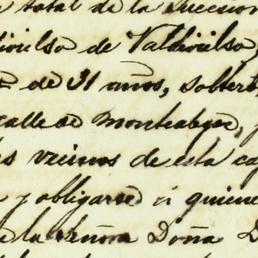 total de la sucesion
de Valdivielso,
de 31 años, solter
calle de Montealegre,
vecinos de esta ca
y obligarse á quiene
la señora Doña